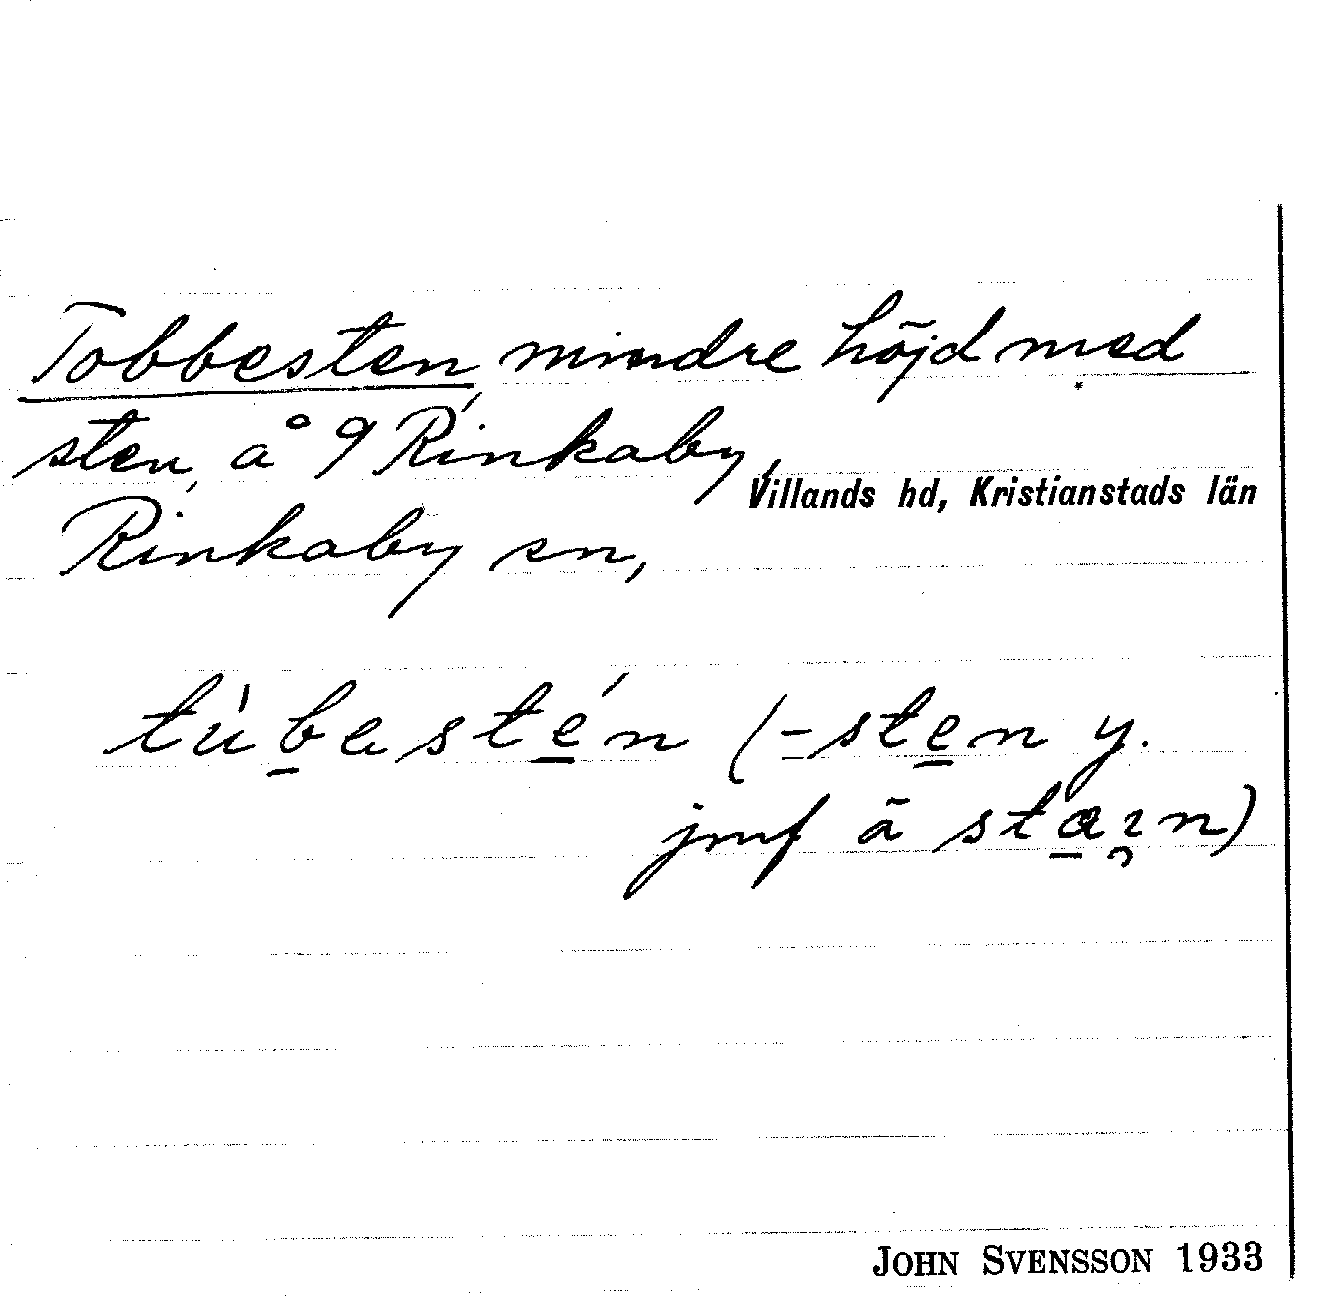 Tobbesten, mindre höjd med
sten, å 9 Rinkaby,
Villands hd, Kristianstads län
Rinkaby sn,
tùbestén (-sten y.
jmf ā stæın)
JOHN SVENSSON 1933